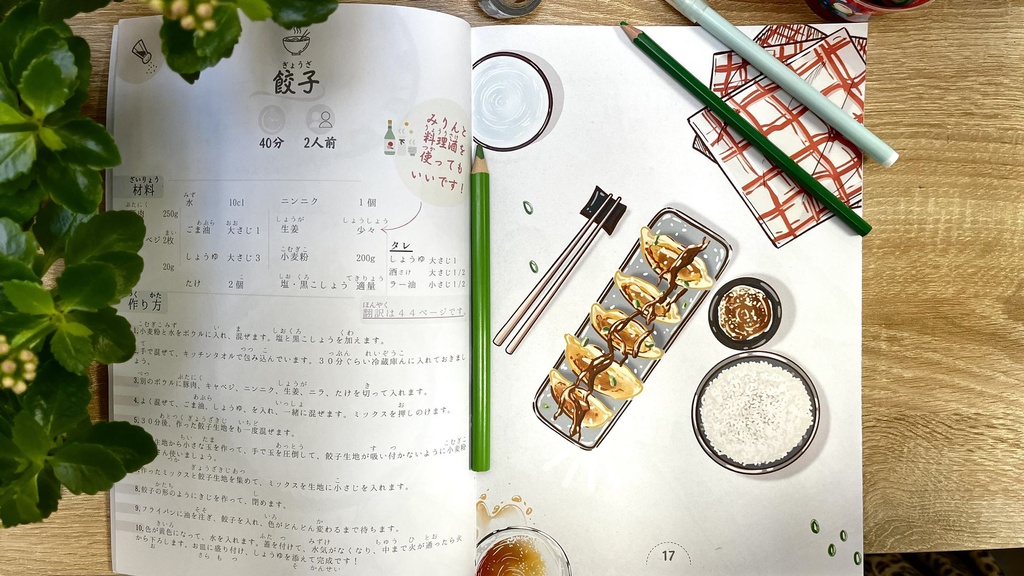 ぎょうざ
餃子
40分 2人前
みりんと
料理酒を
使っても
いいです!
ざいりょう
材料
250g
みず
水 10cl
ニンニク 1個
ベジ 2枚
あぶら おお
ごま油 大さじ1
しょうが しょうしょう
生姜 少々
20g
しょうゆ 大さじ3
こむぎこ
小麦粉 200g
たけ 2個
しお くろ てきりょう
塩・黒こしょう 適量
タレ
しょうゆ 大さじ1
酒 さけ 大さじ1/2
ラー油 大さじ1/2
ほんやく
翻訳は44ページです
く かた
作り方
1.小麦粉と水をボウルに入れ、混ぜます。塩と黒こしょうを加えます。
手で混ぜて、キッチンタオルで包み込んでいます。30分ぐらい冷蔵庫んに入れておきまし
ょう。
3.別のボウルに豚肉、キャベジ、ニンニク、生姜、ニラ、たけを切って入れます。
4.よく混ぜて、ごま油、しょうゆ、を入れ、一緒に混ぜます。ミックスを押しのけます。
5.30分後、作った餃子生地をも一度混ぜます。
生地から小さな玉を作って、手で玉を圧倒して、餃子生地が吸い付かないように小麦粉
使いましょう。
作ったミックスと餃子生地を集めて、ミックスを生地に小さじを入れます。
8.餃子の形のようにきじを作って、閉めます。
9.フライパンに油を注ぎ、餃子を入れ、色がどんどん変わるまで待ちます。
10.色が黄色になって、水を入れます。蓋を付けて、水気がなくなり、中まで火が通ったら火
から下ろします。お皿に盛り付け、しょうゆを添えて完成です!
17